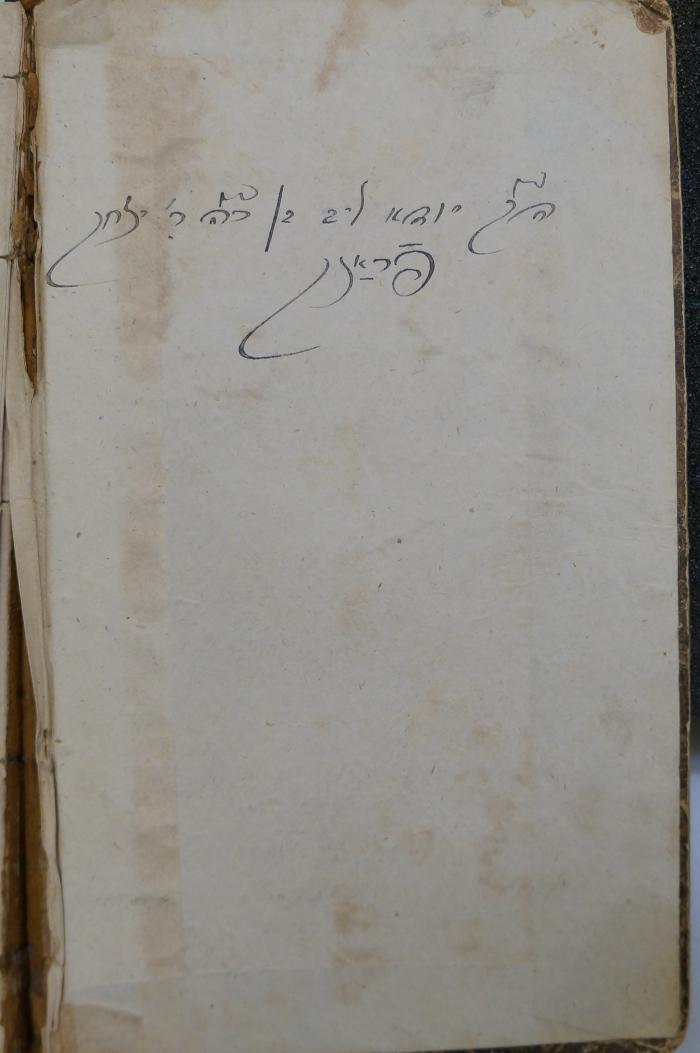 הק' יודא ליב בן כה"ה ר' יצחק
פֿראַנק